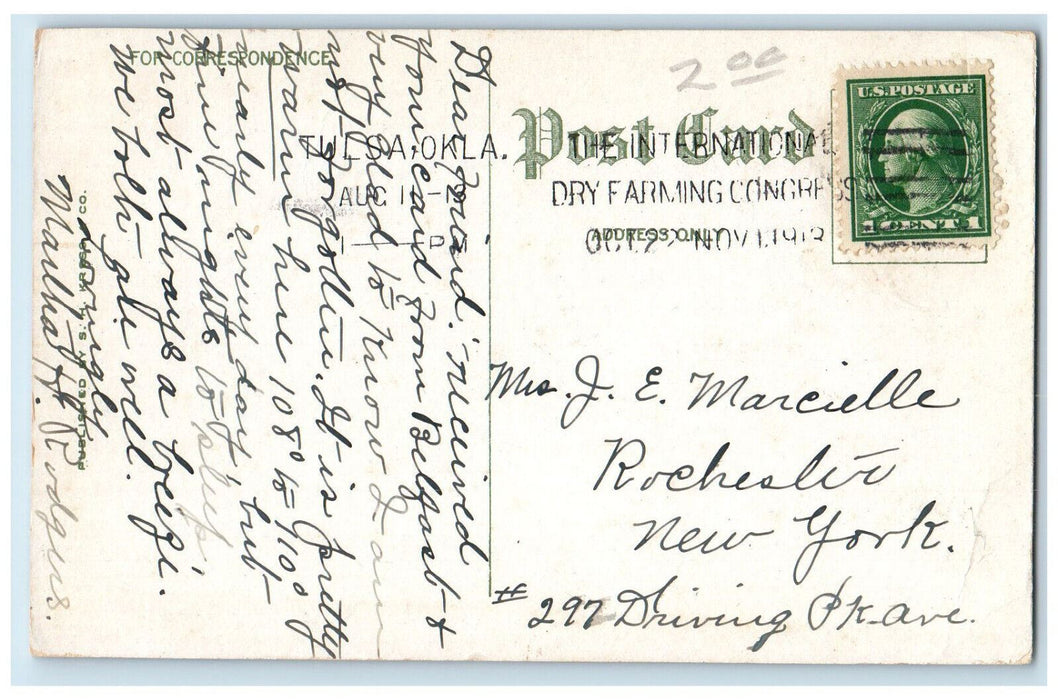 FOR CORRESPONDENCE
Dear Friend. Received
your card from Belfast &
very glad to know I am
not forgotten. It is pretty
warm here 108° to 110°
nearly every day, but
fine nights to sleep,
most always a breeze.
We both are well.
Lovingly
Martha H. Rodgers.
PUBLISHED BY S. H. KRESS & CO.
2 00
Post Card
U.S.POSTAGE
1 CENT 1
TULSA, OKLA.
AUG 11
1 PM
THE INTERNATIONAL
DRY FARMING CONGRESS
OCT.22 NOV.1.1913
ADDRESS ONLY
Mrs. J. E. Marcielle
Rochester
New York.
# 297 Driving Pk. Ave.